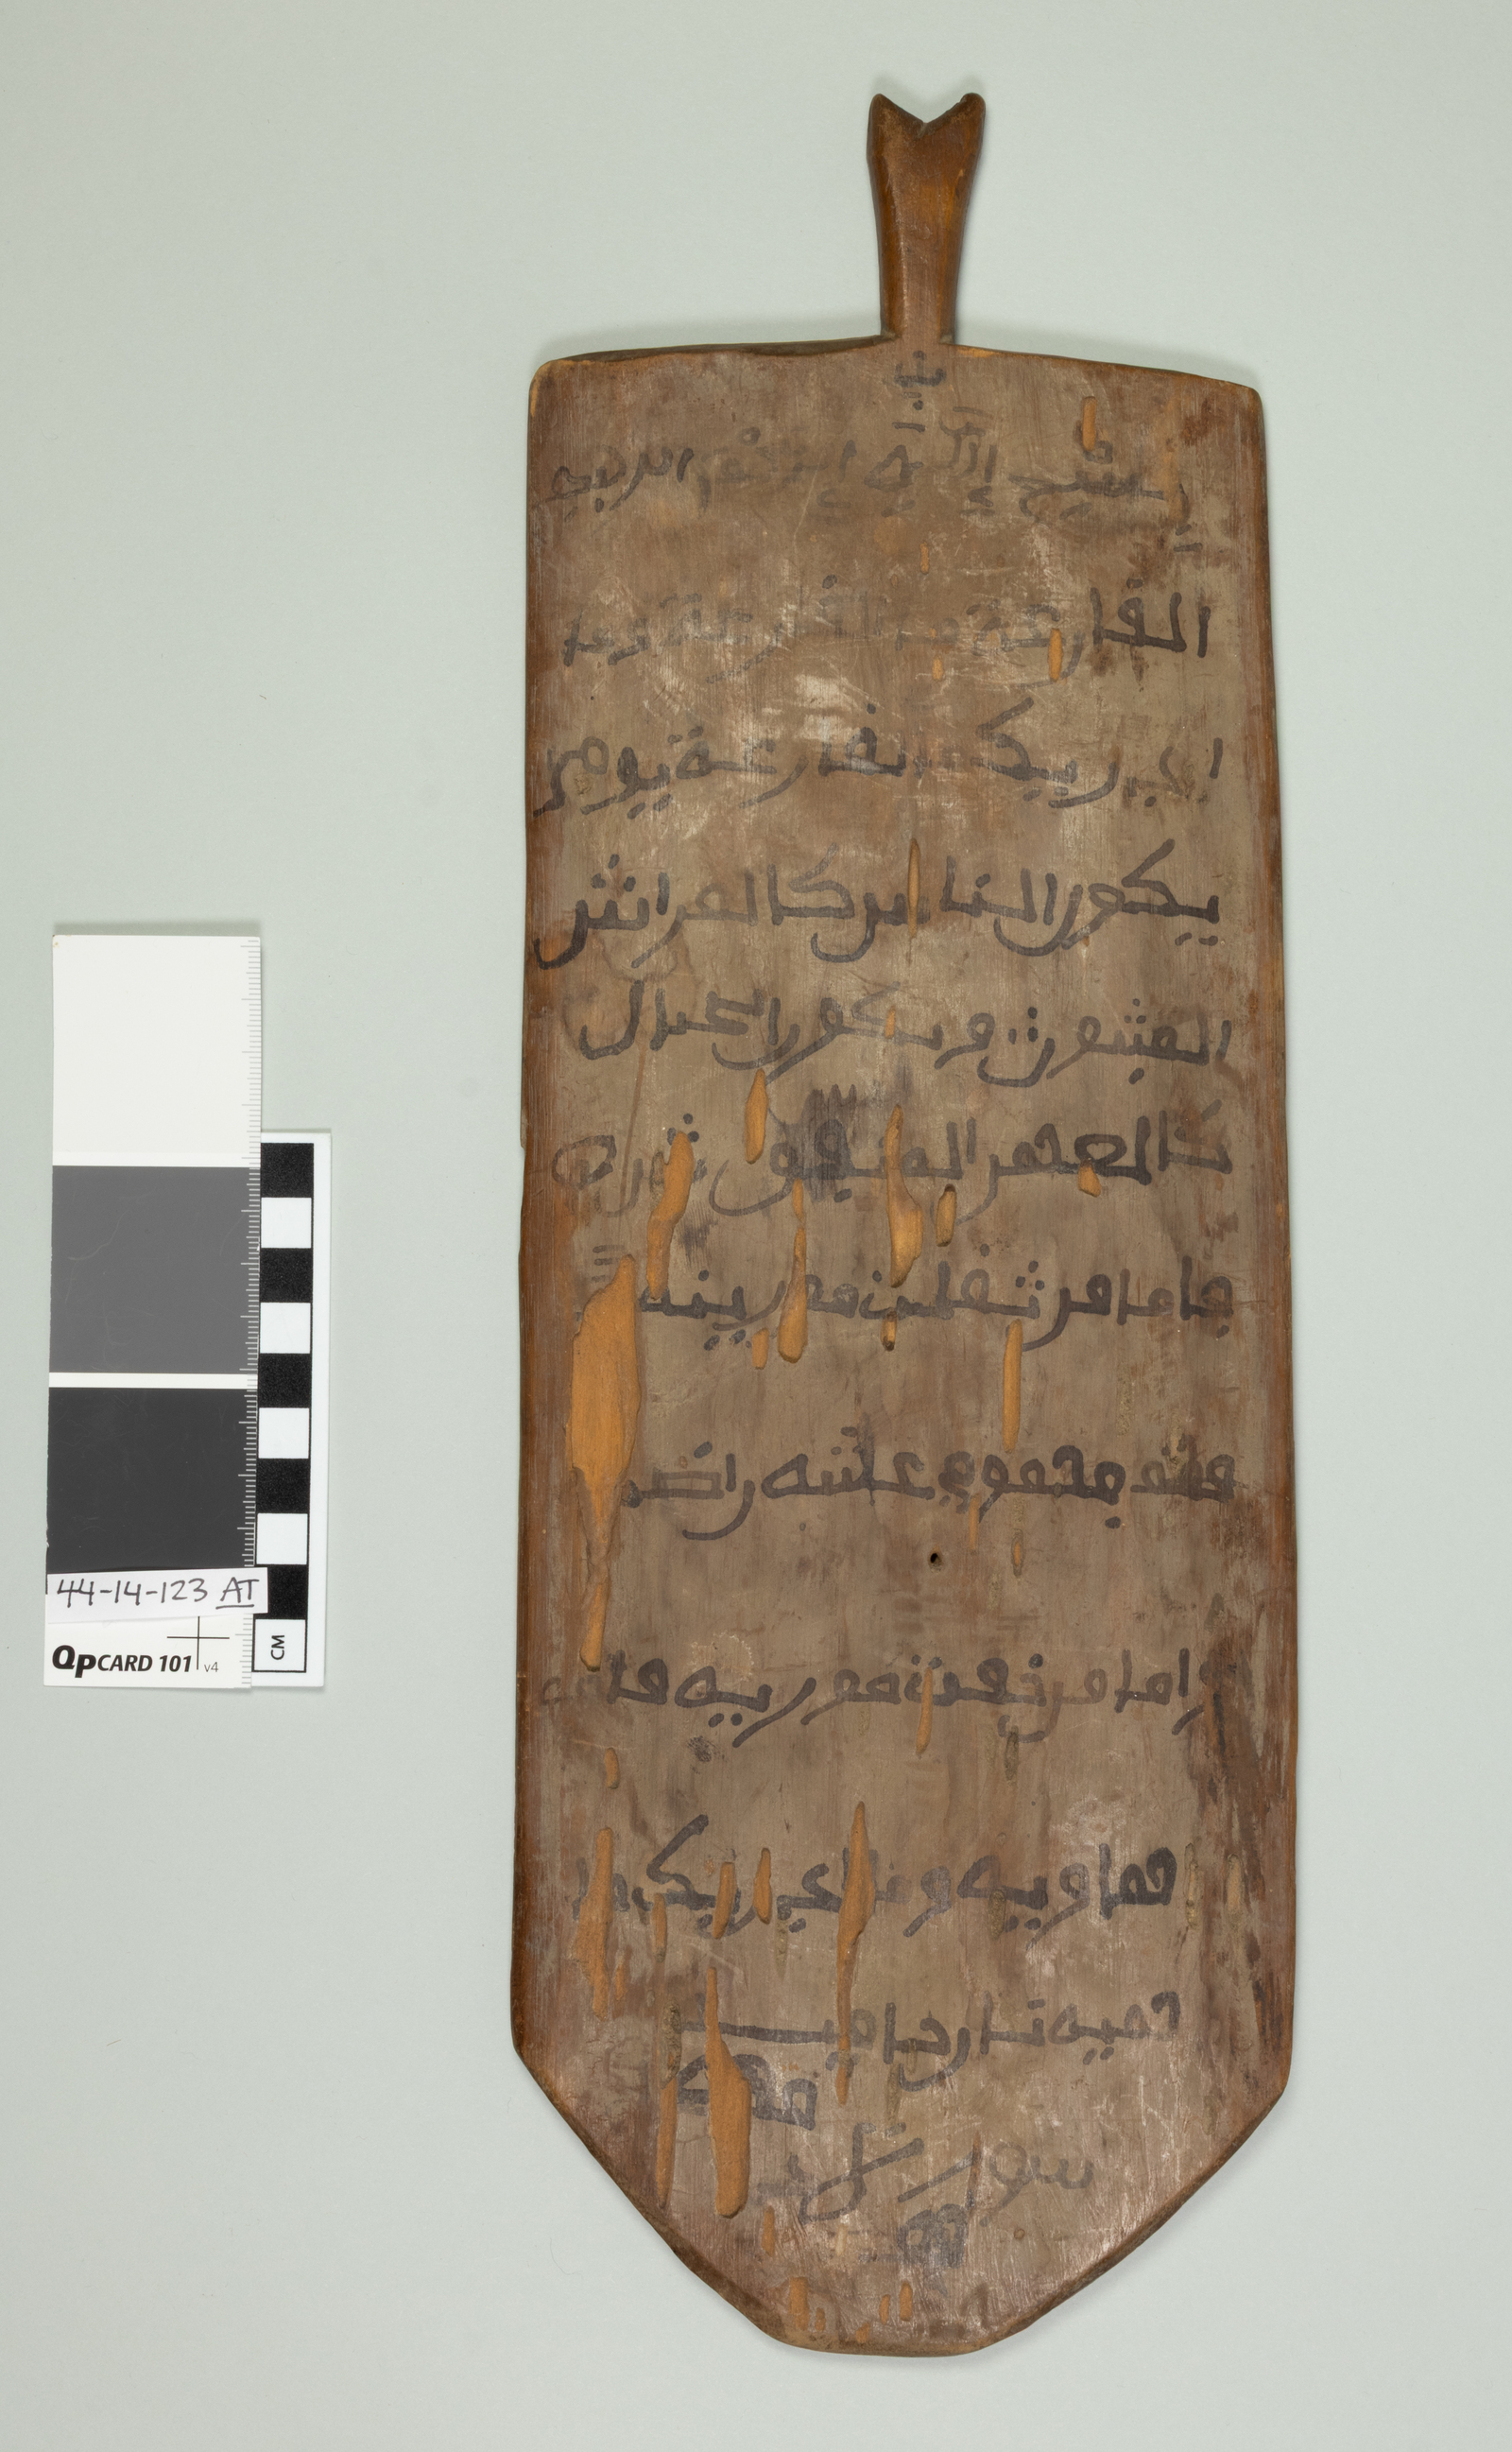 بسم الله الرحمن الرحيم
القارعة ما القارعة وما
ادريك القارعة يوم
يكون الناس كالفراش
المبثوث وتكون الجبال
كالعهن المنفوش
فاما من ثقلت موزينه
فهو في عيشة راض
واما من خفت موزينه فامه
هاوية وما ادريك ما
هيه نار حامية
سورة
44-14-123 AT
QPCARD 101 v4
CM